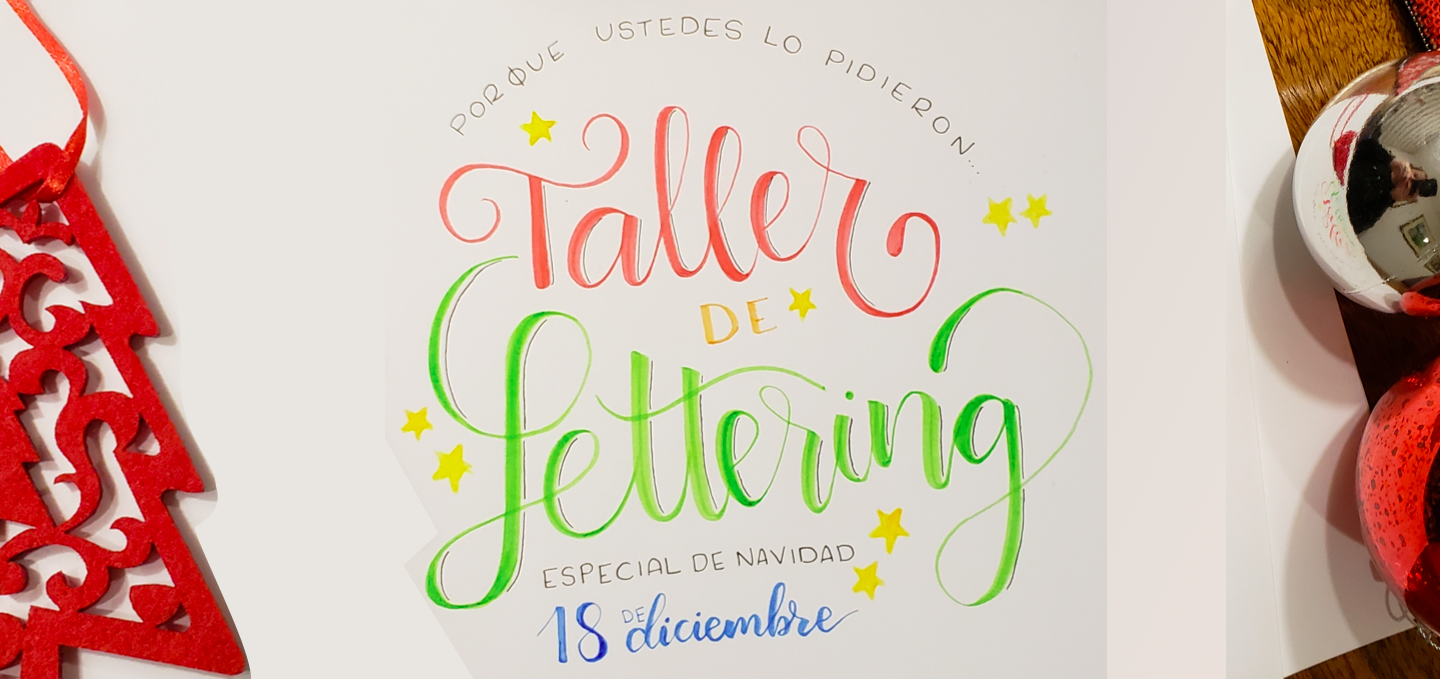 PORQUE USTEDES LO PIDIERON...
Taller
DE
Lettering
ESPECIAL DE NAVIDAD
18 DE diciembre